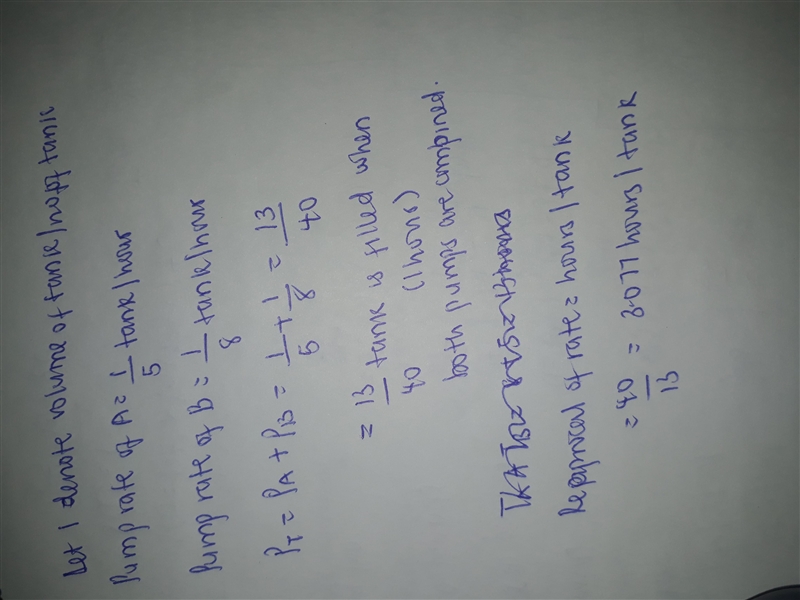 Let 1 denote volume of tank/no of tank
Pump rate of A = 1/5 tank/hour
Pump rate of B = 1/8 tank/hour
PT = PA + PB = 1/5 + 1/8 = 13/40
= 13/40 tank is filled when (1 hour)
both pumps are combined.
Reciprocal of rate = hours/tank
= 40/13 = 3.077 hours/tank